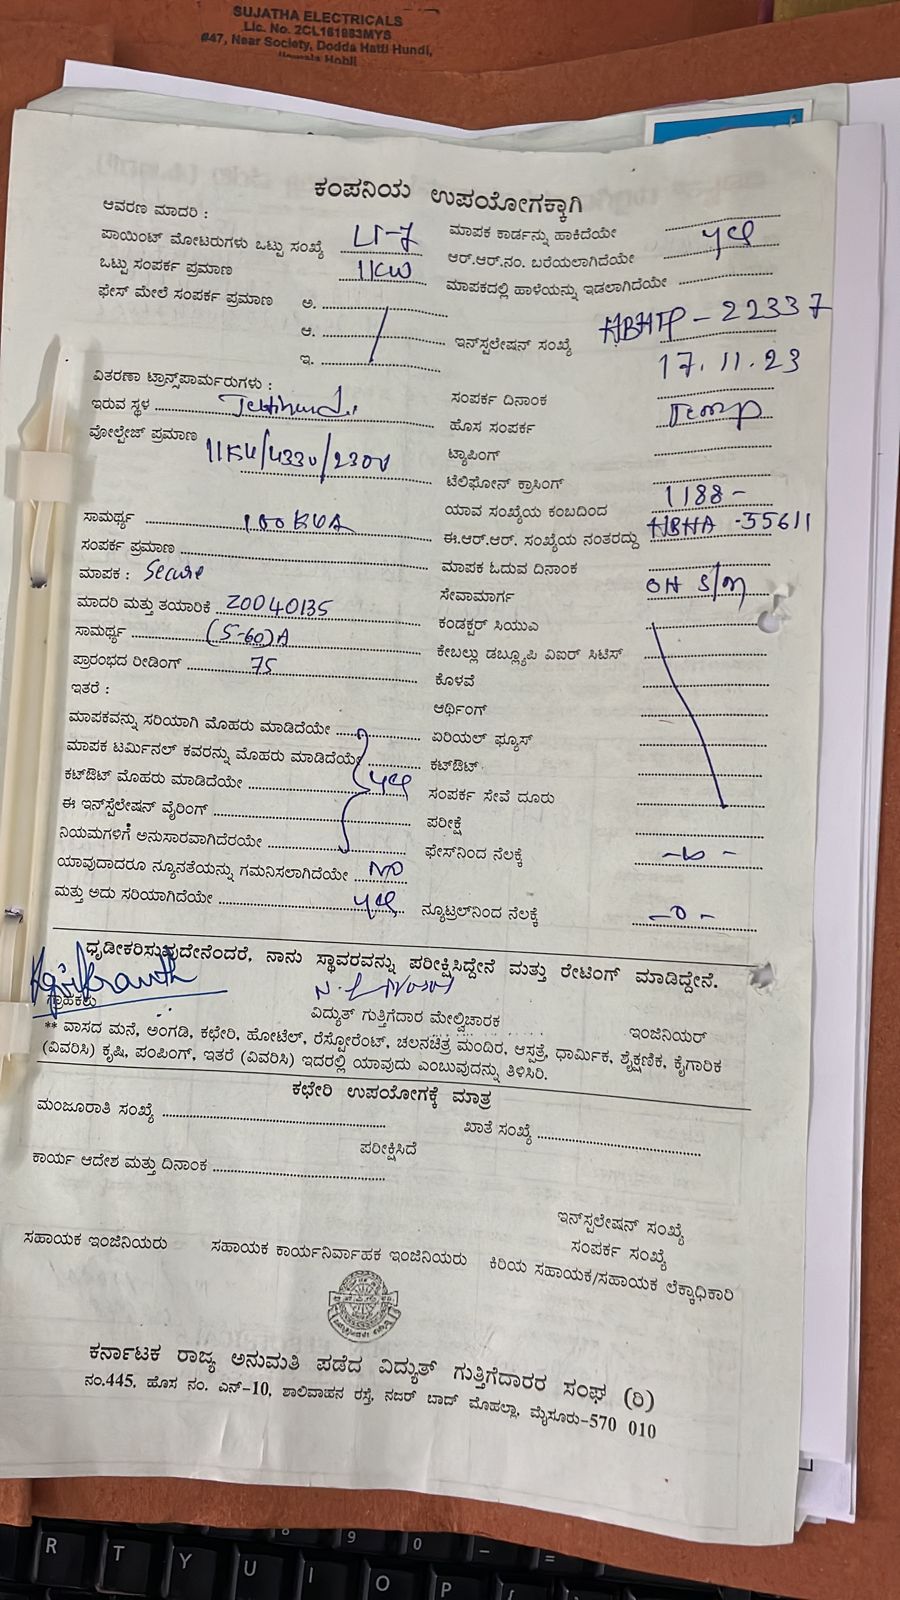 SUJATHA ELECTRICALS
Lic. No. 2CL161983MYS
#47, Near Society, Dodda Hatti Hundi,
ಕಂಪನಿಯ ಉಪಯೋಗಕ್ಕಾಗಿ
ಆವರಣ ಮಾದರಿ :
ಮಾಪಕ ಕಾರ್ಡನ್ನು ಹಾಕಿದೆಯೇ
ಪಾಯಿಂಟ್ ಮೋಟರುಗಳು ಒಟ್ಟು ಸಂಖ್ಯೆ LT-7
ಆರ್.ಆರ್.ನಂ. ಬರೆಯಲಾಗಿದೆಯೇ yes
ಒಟ್ಟು ಸಂಪರ್ಕ ಪ್ರಮಾಣ 1KW
ಮಾಪಕದಲ್ಲಿ ಹಾಳೆಯನ್ನು ಇಡಲಾಗಿದೆಯೇ
ಫೇಸ್ ಮೇಲೆ ಸಂಪರ್ಕ ಪ್ರಮಾಣ ಅ.
ಆ.
ಇನ್‌ಸ್ಪಲೇಷನ್ ಸಂಖ್ಯೆ HBHTP-22337
ಇ.
17.11.23
ವಿತರಣಾ ಟ್ರಾನ್ಸ್‌ಪಾರ್ಮರುಗಳು :
ಸಂಪರ್ಕ ದಿನಾಂಕ
ಇರುವ ಸ್ಥಳ
ಹೊಸ ಸಂಪರ್ಕ Temp
ವೋಲ್ಟೇಜ್ ಪ್ರಮಾಣ 11KV/433V/230V
ಟ್ಯಾಪಿಂಗ್
ಟೆಲಿಫೋನ್ ಕ್ರಾಸಿಂಗ್
ಯಾವ ಸಂಖ್ಯೆಯ ಕಂಬದಿಂದ 1188-
ಸಾಮರ್ಥ್ಯ 100KVA
ಈ.ಆರ್.ಆರ್. ಸಂಖ್ಯೆಯ ನಂತರದ್ದು HBHA-55611
ಸಂಪರ್ಕ ಪ್ರಮಾಣ
ಮಾಪಕ ಓದುವ ದಿನಾಂಕ
ಮಾಪಕ : Secure
ಸೇವಾಮಾರ್ಗ OH S/M
ಮಾದರಿ ಮತ್ತು ತಯಾರಿಕೆ 20040135
ಕಂಡಕ್ಟರ್ ಸಿಯುಎ
ಸಾಮರ್ಥ್ಯ (5-60)A
ಕೇಬಲ್ಲು ಡಬ್ಲ್ಯೂಪಿ ವಿಐರ್ ಸಿಟಿಸ್
ಪ್ರಾರಂಭದ ರೀಡಿಂಗ್ 75
ಕೊಳವೆ
ಇತರೆ :
ಆರ್ಥಿಂಗ್
ಮಾಪಕವನ್ನು ಸರಿಯಾಗಿ ಮೊಹರು ಮಾಡಿದೆಯೇ
ಏರಿಯಲ್ ಫ್ಯೂಸ್
ಮಾಪಕ ಟರ್ಮಿನಲ್ ಕವರನ್ನು ಮೊಹರು ಮಾಡಿದೆಯೇ
ಕಟ್‌ಔಟ್
ಕಟ್‌ಔಟ್ ಮೊಹರು ಮಾಡಿದೆಯೇ yes
ಸಂಪರ್ಕ ಸೇವೆ ದೂರು
ಈ ಇನ್‌ಸ್ಪೆಲೇಷನ್ ವೈರಿಂಗ್
ಪರೀಕ್ಷೆ
ನಿಯಮಗಳಿಗೆ ಅನುಸಾರವಾಗಿದೆರಯೇ
ಫೇಸ್‌ನಿಂದ ನೆಲಕ್ಕೆ -0-
ಯಾವುದಾದರೂ ನ್ಯೂನತೆಯನ್ನು ಗಮನಿಸಲಾಗಿದೆಯೇ NO
ಮತ್ತು ಅದು ಸರಿಯಾಗಿದೆಯೇ yes
ನ್ಯೂಟ್ರಲ್‌ನಿಂದ ನೆಲಕ್ಕೆ -0-
ಧೃಡೀಕರಿಸುವುದೇನೆಂದರೆ, ನಾನು ಸ್ಥಾವರವನ್ನು ಪರೀಕ್ಷಿಸಿದ್ದೇನೆ ಮತ್ತು ರೇಟಿಂಗ್ ಮಾಡಿದ್ದೇನೆ.
ಗ್ರಾಹಕರು
ವಿದ್ಯುತ್ ಗುತ್ತಿಗೆದಾರ ಮೇಲ್ವಿಚಾರಕ
ಇಂಜಿನಿಯರ್
** ವಾಸದ ಮನೆ, ಅಂಗಡಿ, ಕಛೇರಿ, ಹೋಟೆಲ್, ರೆಸ್ಟೋರೆಂಟ್, ಚಲನಚಿತ್ರ ಮಂದಿರ, ಆಸ್ಪತ್ರೆ, ಧಾರ್ಮಿಕ, ಶೈಕ್ಷಣಿಕ, ಕೈಗಾರಿಕ
(ವಿವರಿಸಿ) ಕೃಷಿ, ಪಂಪಿಂಗ್, ಇತರೆ (ವಿವರಿಸಿ) ಇದರಲ್ಲಿ ಯಾವುದು ಎಂಬುವುದನ್ನು ತಿಳಿಸಿರಿ.
ಕಛೇರಿ ಉಪಯೋಗಕ್ಕೆ ಮಾತ್ರ
ಮಂಜೂರಾತಿ ಸಂಖ್ಯೆ
ಖಾತೆ ಸಂಖ್ಯೆ
ಪರೀಕ್ಷಿಸಿದೆ
ಕಾರ್ಯ ಆದೇಶ ಮತ್ತು ದಿನಾಂಕ
ಇನ್‌ಸ್ಪಲೇಷನ್ ಸಂಖ್ಯೆ
ಸಂಪರ್ಕ ಸಂಖ್ಯೆ
ಸಹಾಯಕ ಇಂಜಿನಿಯರು ಸಹಾಯಕ ಕಾರ್ಯನಿರ್ವಾಹಕ ಇಂಜಿನಿಯರು ಕಿರಿಯ ಸಹಾಯಕ/ಸಹಾಯಕ ಲೆಕ್ಕಾಧಿಕಾರಿ
ಕರ್ನಾಟಕ ರಾಜ್ಯ ಅನುಮತಿ ಪಡೆದ ವಿದ್ಯುತ್ ಗುತ್ತಿಗೆದಾರರ ಸಂಘ (ರಿ)
ನಂ.445, ಹೊಸ ನಂ. ಎನ್-10, ಶಾಲಿವಾಹನ ರಸ್ತೆ, ನಜರ್ ಬಾದ್ ಮೊಹಲ್ಲಾ, ಮೈಸೂರು-570 010
8 9 0 - =
R T Y U I O P